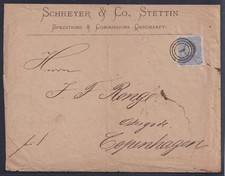 SCHREYER & CO., STETTIN
SPEDITIONS & COMMISSIONS GESCHAEFT.
Herrn
J. F.
Copenhagen